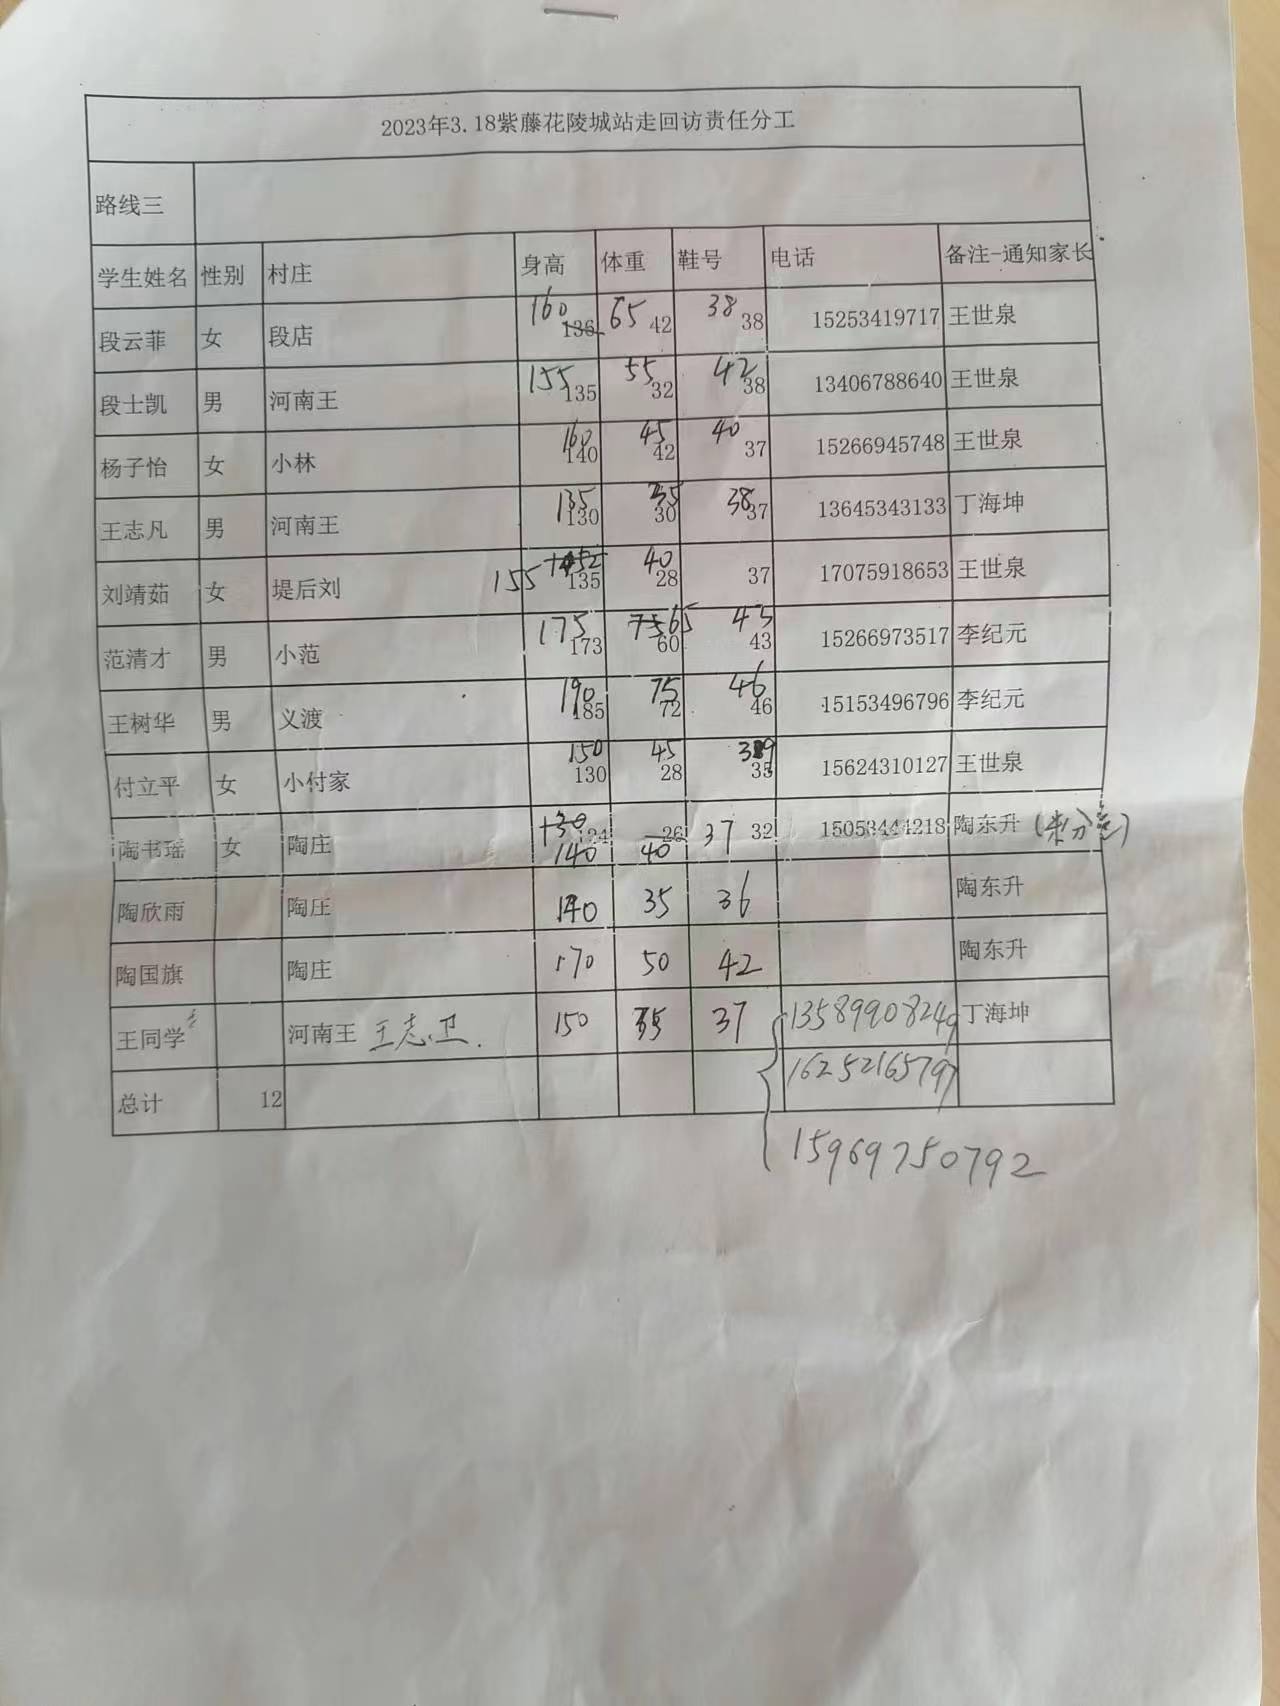 2023年3.18紫藤花陵城站走回访责任分工
路线三
学生姓名 性别 村庄 身高 体重 鞋号 电话 备注-通知家长
段云菲 女 段店 160 136 65 42 38 38 15253419717 王世泉
段士凯 男 河南王 155 135 55 32 42 38 13406788640 王世泉
杨子怡 女 小林 160 140 45 42 40 37 15266945748 王世泉
王志凡 男 河南王 135 130 35 30 38 37 13645343133 丁海坤
刘靖茹 女 堤后刘 155 135 40 28 37 17075918653 王世泉
范清才 男 小范 175 173 75 65 60 43 43 15266973517 李纪元
王树华 男 义渡 190 185 75 72 46 46 15153496796 李纪元
付立平 女 小付家 150 130 45 28 39 35 15624310127 王世泉
陶书瑶 女 陶庄 130 124 140 26 40 37 32 15053444218 陶东升
陶欣雨 陶庄 140 35 36 陶东升
陶国旗 陶庄 170 50 42 陶东升
王同学 河南王 王志卫. 150 35 37 13589908249 丁海坤
总计 12 16252165797
15969750792